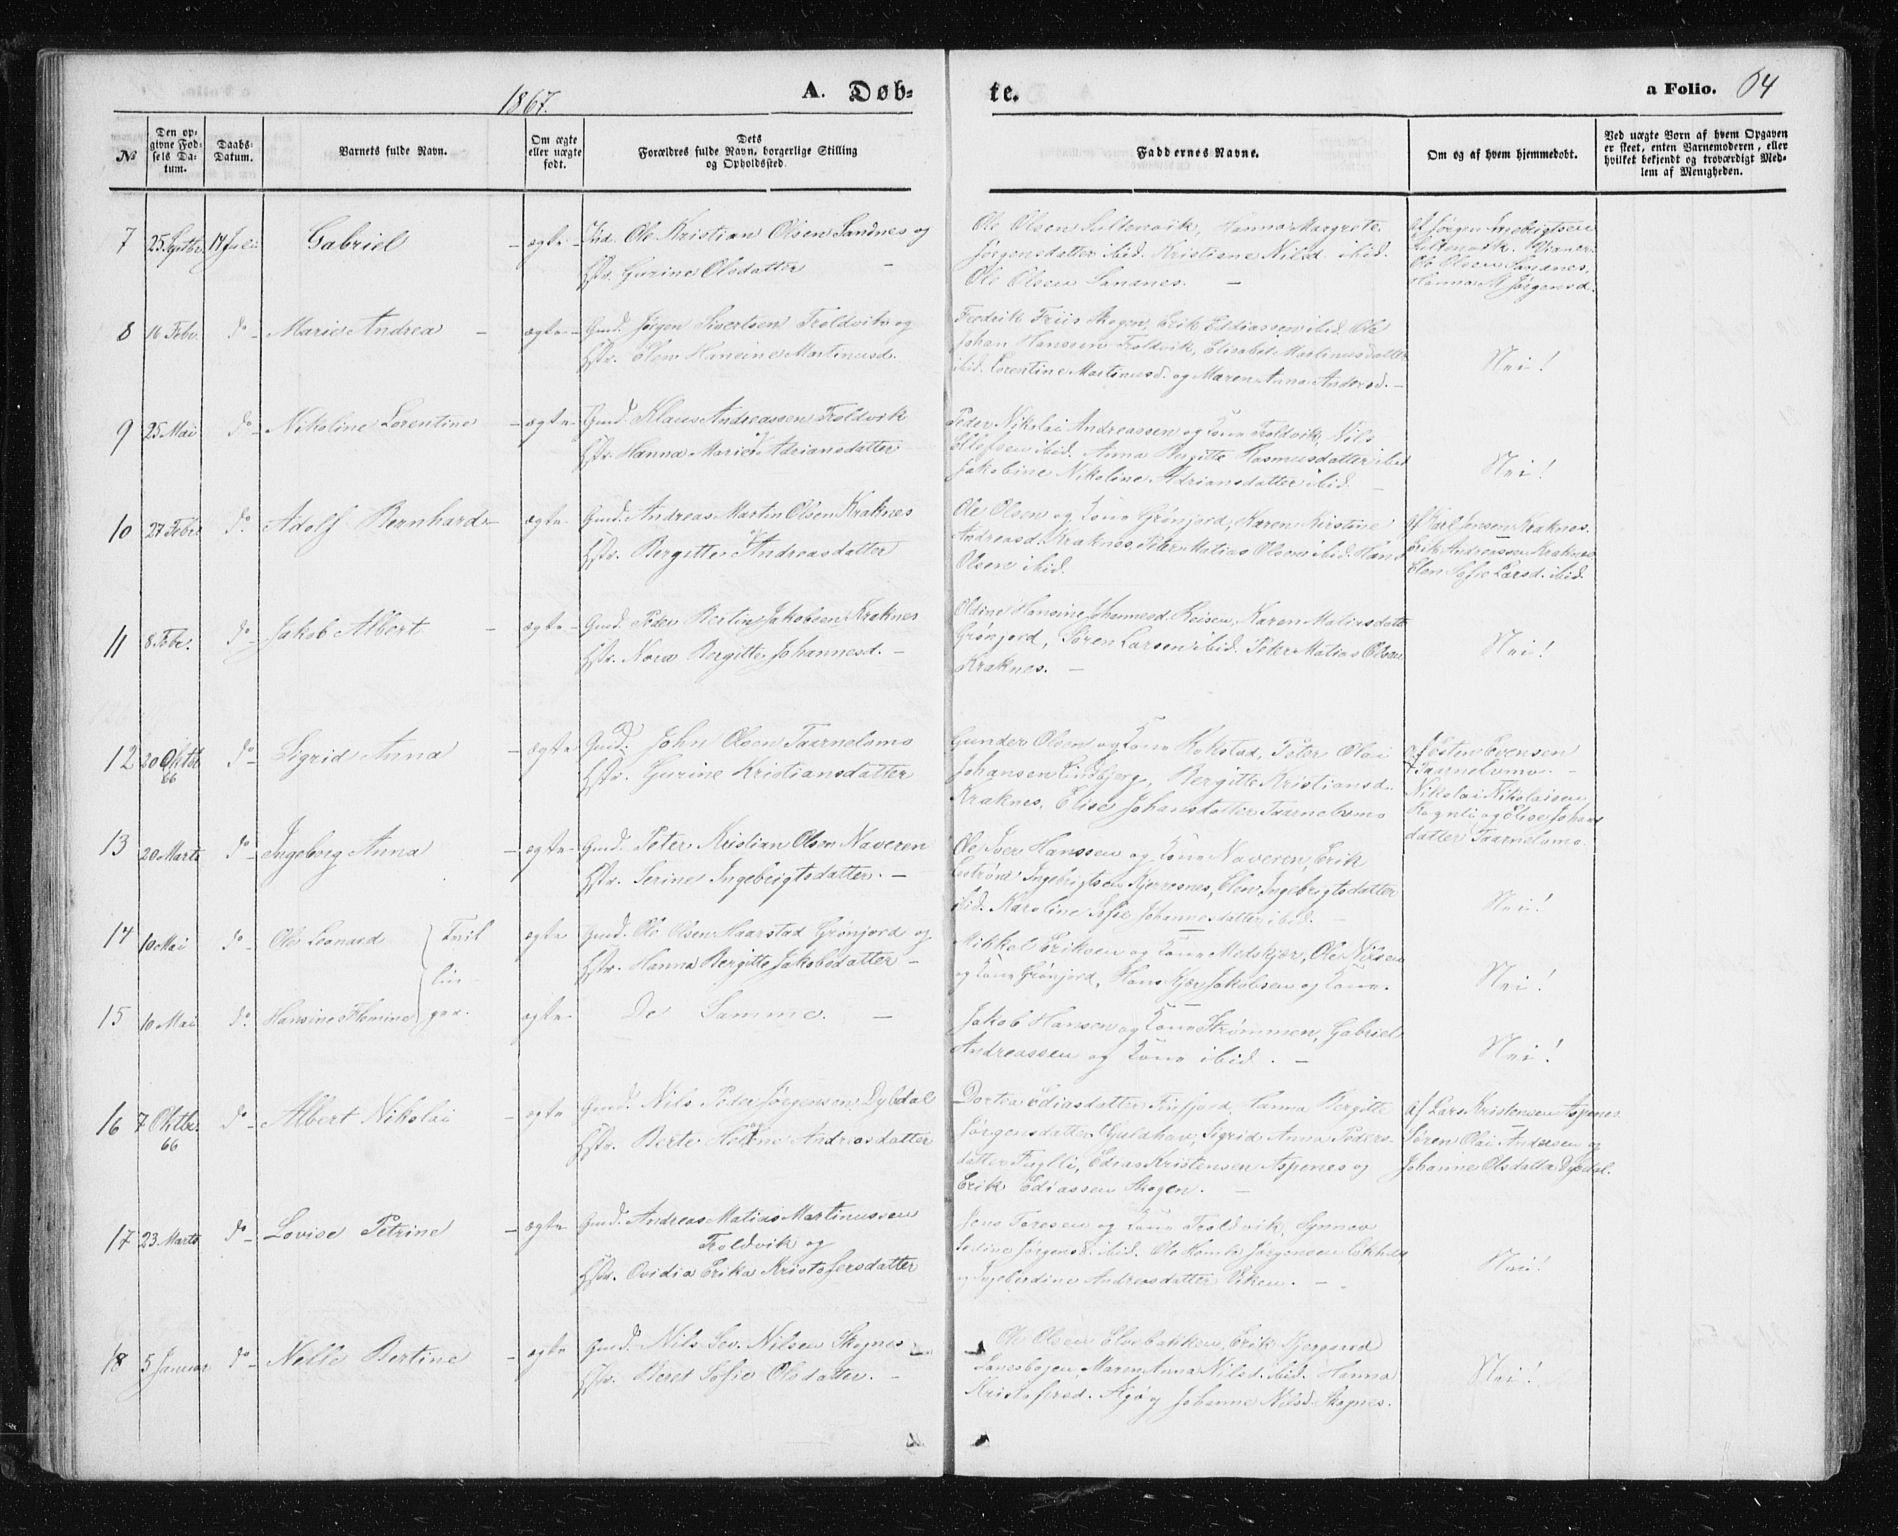 1867.
A. Døb-
te.
a Folio. 64
№
Den op-
givne Fød-
sels Da-
tum.
Daabs-
Datum.
Barnets fulde Navn.
Om ægte
eller uægte
født.
Dets
Forældres fulde Navn, borgerlige Stilling
og Opholdssted.
Faddernes Navne.
Om og af hvem hjemmedøbt.
Ved uægte Børn af hvem Opgaven
er skeet, enten Barnemoderen, eller
hvilket bekjendt og troværdigt Med-
lem af Menigheden.
7 25 Septbr 14 Juli Gabriel – ægte – Ole Kristian Olsen Sandnes og
Hstr. Gurine Olsdatter –
Ole Olsen Sultenvik, Hanna Margrete
Jørgensdatter ibid. Kristiane Nilsd. ibid.
Ole Olsen Sandnes. –
af Jørgen Ingebrigtsen
Sultenvik.
Ole Olsen Sandnes,
Hanna M Jørgensd.
8 16 Febr. do – Marie Andrea – ægte – Gmd. Jørgen Sivertsen Troldvik og
Hstr. Elen Hansine Martinusd.
Fredrik Friis Skogen, Erik Ediassen ibid. Ole
Johan Hanssen Troldvik, Elisabet Martinusdatter
ibid. Lorentine Martinusd. og Maren Anna Andersd. –
Nei!
9 25 Mai do – Nikoline Lorentine – ægte – Gmd. Klaus Andreassen Troldvik
og
Hstr. Hanna Marie Adriansdatter
Peder Nikolai Andreassen og Kone Troldvik, Nils
Ellefsen ibid. Anna Bergitte Rasmusdatter ibid
Jakobine Nikoline Adriansdatter ibid. –
Nei!
10 27 Febr do. Adolf Bernhard – ægte – Gmd. Andreas Martin Olsen Kraknes
og
Hstr. Bergitte Andreasdatter
Ole Olsen og Kone Grønjord, Karen Kirstine
Andreasd. Kraknes, Peter Matias Olsen ibid. Hans
Olsen ibid.
af Karl Jensen Kraknes.
Erik Andreassen Kraknes
Elen Sofie Larsd. ibid.
11 8 Febr. do – Jakob Albert – ægte – Gmd. Peder Bertin Jakobsen Kraknes
Hstr. Nora Bergitte Johannesd. –
Oldine Hansine Johannesd. Reisen, Karen Matiasdatt
Grønjord, Søren Larsen ibid. Peter Matias Olsen
Kraknes. –
Nei!
12 20 Oktbr 66 do – Sigrid Anna – ægte Gmd. John Olsen Taarnelvmo
Hstr. Gurine Kristiansdatter
Gunder Olsen og Kone Kokstad, Peter Olai
Johansen Lindbjerg, Bergitte Kristiansd.
Kraknes, Elise Johansdatter Taarnelvmo
af Esten Evensen
Taarnelvmo. –
Nikolai Nikolaisen
Kognli og Elise Johans
datter Taarnelvmo.
13 20 Marts do – Ingeborg Anna – ægte – Gmd. Peter Kristian Olsen Naveren
Hstr. Serine Ingebrigtsdatter. –
Ole Iver Hanssen og Kone Naveren, Erik
Ingebrigtsen Kjerresnes, Elen Ingebrigtsdatter
ibid. Karoline Sofie Johannesdatter ibid. –
Nei!
14 10 Mai do – Ole Leonard { Tvil ægte Gmd. Ole Olsen Haarstad Grønjord og
Hstr. Hanna Bergitte Jakobsdatter –
lin –
Mikkel Eriksen og Kone Medskjær, Ole Nilsen
og Kone Grønjord, Hans Kjær Jakobsen og Kone.
Nei!
15 10 Mai do. Hansine Flemine ger. ægte – De Samme. –
Jakob Hansen og Kone Strømmen, Gabriel
Andreassen og Kone ibid. –
Nei!
16 7 Oktbr. 66 do – Albert Nikolai – ægte Gmd. Nils Peder Jørgensen Dybdal
Hstr. Berte Helene Andreasdatter
Dortea Ediasdatter Finfjord, Hanna Bergitte
Jørgensdatter Guldhav, Sigrid Anna Peders-
datter Fuglli, Edias Kristensen Aspenes og
Erik Ediassen Skogen. –
af Lars Kristensen Aspenes
Søren Olai Andersen og
Johanne Olsdatter Dybdal.
17 23 Marts do – Lovise Petrine – ægte Gmd. Andreas Matias Martinussen
Troldvik og
Hstr. Ovidia Erika Kristofersdatter
Jens Toresen og Kone Troldvik, Synnøv
Jørgensd. ibid. Ole Jørgensen
og Ingeberdine Andreasdatter Viken. –
Nei!
18 5 Januar do – Nelle Bertine – ægte Gmd. Nils Sev. Nilsen Skognes
Hstr. Beret Sofie Olsdatter. –
Ole Olsen Elvebakken, Erik Kjergaard
Lanesbogen, Maren Anna Nilsd. ibid. Hanna
Kristofersd. og Johanne Nilsd. Skognes.
Nei!